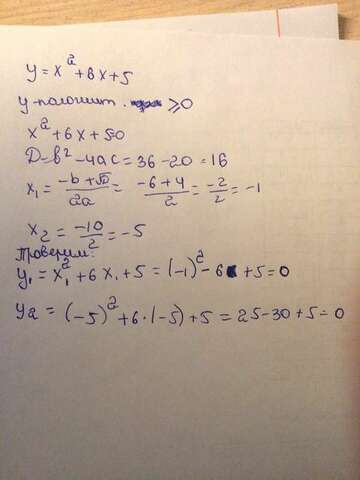 y = x² + 6x + 5
у-положит. ⩾0
x² + 6x + 5=0
D=b² - 4ac = 36 - 20 = 16
x₁ = (-b + √D)/2a = (-6 + 4)/2 = -2/2 = -1
x₂ = -10/2 = -5
Проверим:
y₁ = x₁² + 6x₁ + 5 = (-1)² - 6 + 5 = 0
y₂ = (-5)² + 6·(-5) + 5 = 25 - 30 + 5 = 0